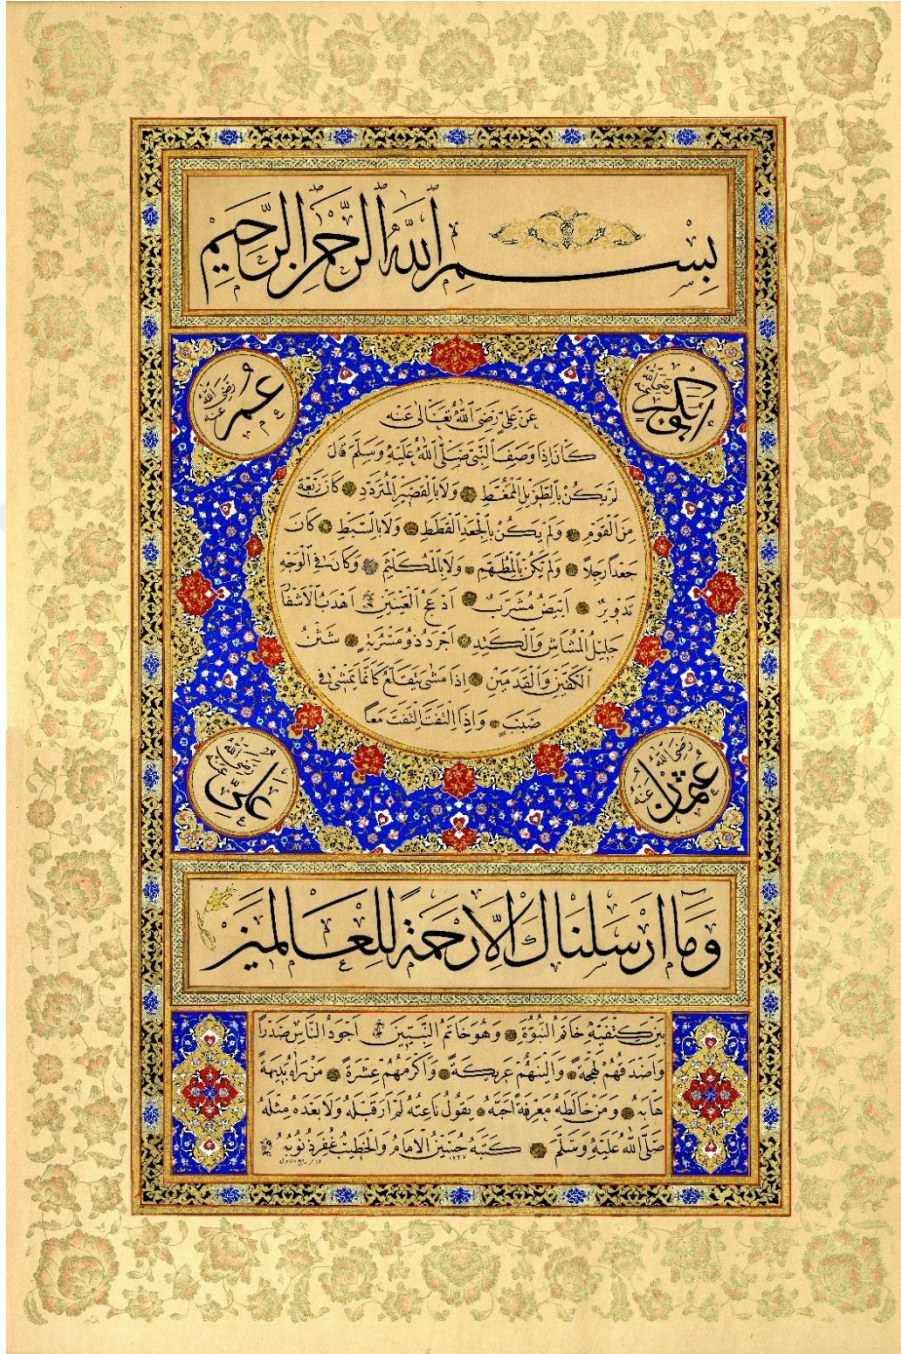 بِسْمِ اللّٰهِ الرَّحْمٰنِ الرَّحِيمِ
ابى بكر رضى الله عنه
عمر رضى الله عنه
عَنْ عَلِيٍّ رَضِىَ اللّٰهُ تَعَالٰى عَنْه
كَانَ اِذَا وَصَفَ النَّبِىَّ صَلَّى اللّٰهُ عَلَيْهِ وَسَلَّمَ قَالَ
لَمْ يَكُنْ بِالطَّوِيلِ الْمُمَّغِطِ وَلَا بِالْقَصِيرِ الْمُتَرَدِّدِ كَانَ رَبْعَةً
مِنَ الْقَوْمِ وَلَمْ يَكُنْ بِالْجَعْدِ الْقَطَطِ وَلَا بِالسَّبِطِ كَانَ
جَعْدًا رَجِلًا وَلَمْ يَكُنْ بِالْمُطَهَّمِ وَلَا بِالْمُكَلْثَمِ وَكَانَ فِى الْوَجْهِ
تَدْوِيرٌ اَبْيَضُ مُشْرَبٌ اَدْعَجُ الْعَيْنَيْنِ اَهْدَبُ الْاَشْفَارِ
جَلِيلُ الْمُشَاشِ وَالْكَتِدِ اَجْرَدُ ذُو مَسْرُبَةٍ شَثْنُ
الْكَفَّيْنِ وَالْقَدَمَيْنِ اِذَا مَشٰى يَتَقَلَّعُ كَاَنَّمَا يَمْشِى فِى
صَبَبٍ وَاِذَا الْتَفَتَ الْتَفَتَ مَعًا
عثمن رضى الله عنه
على رضى الله عنه
وَمَا اَرْسَلْنَاكَ اِلَّا رَحْمَةً لِلْعَالَمِينَ
بَيْنَ كَتِفَيْهِ خَاتَمُ النُّبُوَّةِ وَهُوَ خَاتَمُ النَّبِيِّينَ اَجْوَدُ النَّاسِ صَدْرًا
وَاَصْدَقُهُمْ لَهْجَةً وَاَلْيَنُهُمْ عَرِيكَةً وَاَكْرَمُهُمْ عِشْرَةً مَنْ رَاٰهُ بَدِيهَةً
هَابَهُ وَمَنْ خَالَطَهُ مَعْرِفَةً اَحَبَّهُ يَقُولُ نَاعِتُهُ لَمْ اَرَ قَبْلَهُ وَلَا بَعْدَهُ مِثْلَهُ
صَلَّى اللّٰهُ عَلَيْهِ وَسَلَّمَ كَتَبَهُ حُسَيْنُ الْاِمَامُ وَالْخَطِيبُ غُفِرَ ذُنُوبُهُ